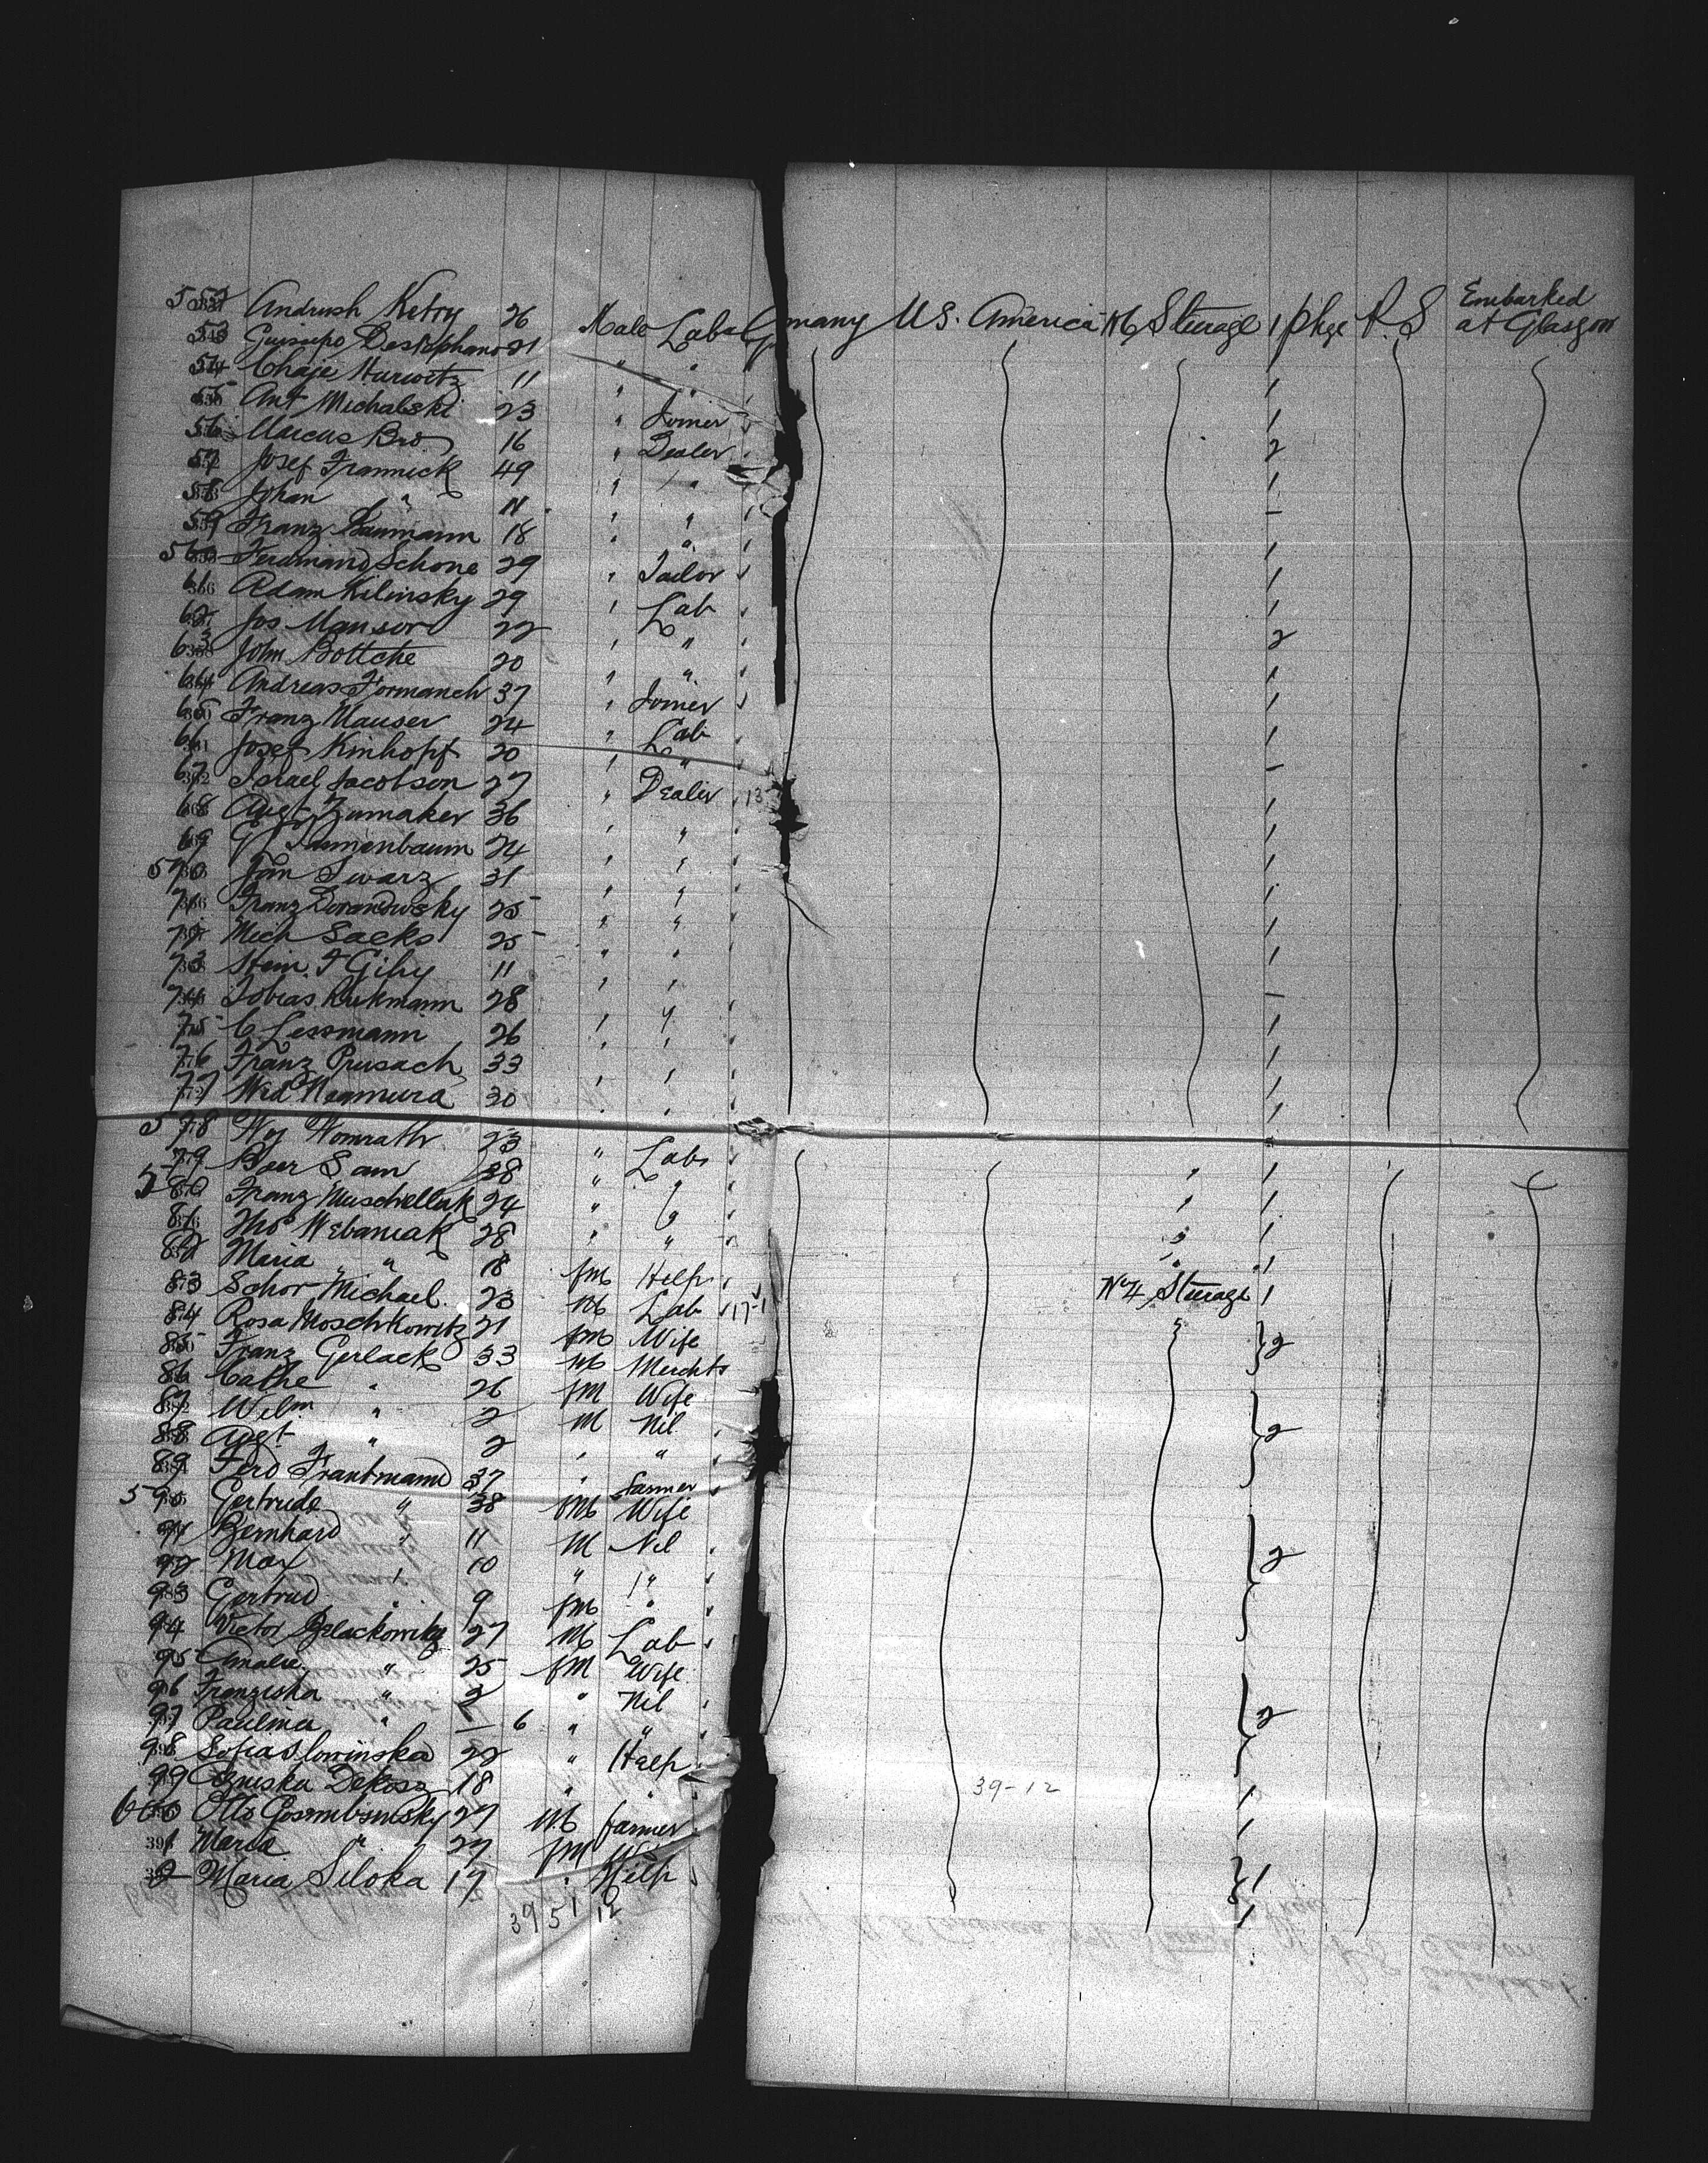 552 Andrush Ketry 26 Male Lab Germany U.S. America No 6 Steerage 1 pkge P.S Embarked at Glasgow
53 Guisiepo Destephano 21 " "
54 Chaje Hurwitz 11 " 1
55 Ant Michalski 23 " Joiner 1
56 Marcus Bro 16 " Dealer 2
57 Josef Frannick 49 " " 1
58 Johan " 11 " " -
59 Franz Baumann 18 " " 1
560 Ferdinand Schone 29 " Tailor 1
61 Adam Kilinsky 29 " Lab 1
62 Jos Mansor 22 " " 2
63 John Bottche 20 " " 1
64 Andreas Formanch 37 " Joiner 1
65 Franz Mauser 24 " Lab 1
66 Josef Kinhopf 20 " " -
67 Israel Jacobson 27 " Dealer 13 1
68 Augt Zumaker 36 " " 1
69 G Tannenbaum 24 " " 1
570 Jan Swarz 31 " " 1
71 Franz Dorandowsky 25 " " 1
72 Mich Sacks 25 " " 1
73 Stein 11 " " -
74 Tobias Rukmann 28 " " 1
75 C Lessmann 26 " " 1
76 Franz Prusach 33 " " 1
77 Wid Nagmura 30 " " 1
578 Hy Womrath 23 " Lab 1
79 Baer Sam 38 " " 1
580 Franz Muschellak 24 " " 1
81 Thos Webaniak 28 " " 1
82 Maria " 18 fm Help
83 Schor Michael 23 M Lab 17-1 No 4 Steerage 1
84 Rosa Moschkowitz 21 fm Wife
85 Franz Gerlack 33 M Mercht 2
86 Cathe " 26 fM Wife
87 Wilm " 2 M Nil
88 Augt " 2 " " 2
89 Ferd Frantmann 37 " farmer
590 Gertrude " 38 fm Wife
91 Bernhard " 11 M Nil
92 Max " 10 " " 2
93 Gertrud " 9 fm "
94 Victor Belackowitz 27 M Lab
95 Amalie " 25 fM Wife
96 Franziska " 2 " Nil
97 Paulina " - 6 " " 2
98 Sofia Slowinska 22 " Help
99 Agniska Dekosz 18 " " 39-12 1
600 Otto Gosembswsky 27 M farmer 1
1 Maria " 27 fM Wife
2 Maria Siloka 17 " Help 1
39 51 12